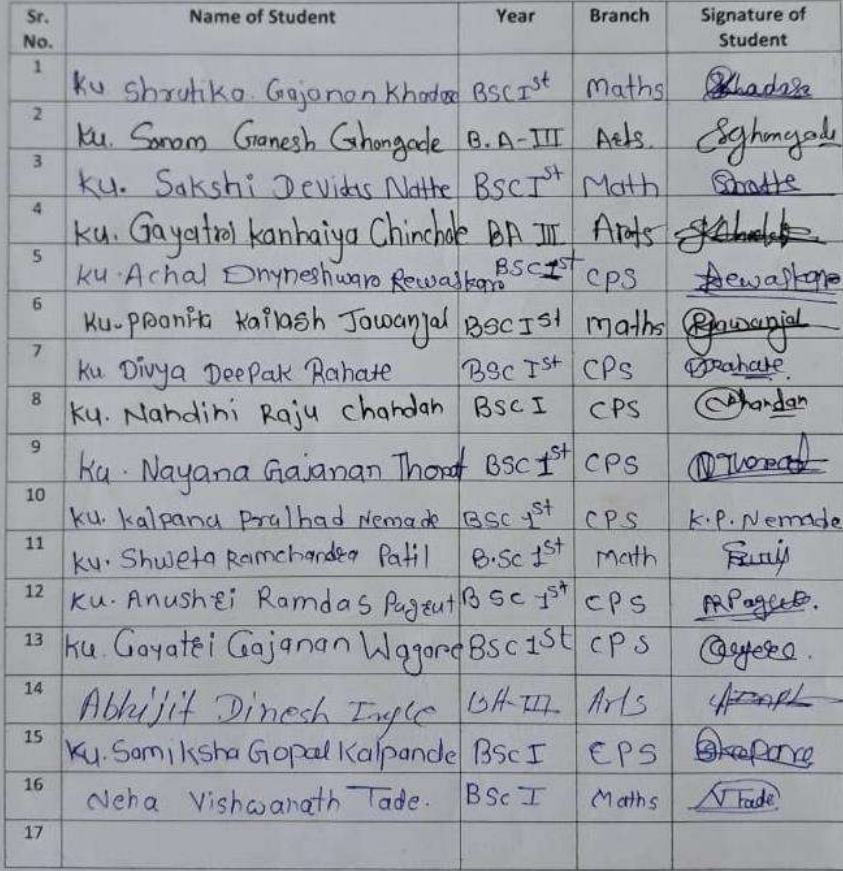 Sr. No. Name of Student Year Branch Signature of Student
1 Ku Shrutika. Gajanan Khadase BSC Ist Maths Khadase
2 Ku. Sonam Ganesh Ghongade B.A-III Arts. Sghongade
3 Ku. Sakshi Devidas Nathe BSC Ist Math
4 Ku. Gayatri Kanhaiya Chinchole BA III Arts
5 Ku. Achal Dnyneshwar Rewaskar BSC Ist CPS Rewaskar
6 Ku. Pranita Kailash Jawanjal BSC Ist Maths Pjawanjal
7 Ku Divya Deepak Rahate BSc Ist CPS Drahate
8 Ku. Nandini Raju Chandan BSC I CPS Chandan
9 Ku. Nayana Gajanan Thorat BSC 1st CPS NThorat
10 Ku. Kalpana Pralhad Nemade BSC 1st CPS K.P. Nemade
11 Ku. Shweta Ramchandra Patil B.Sc 1st Math
12 Ku. Anushri Ramdas Pagrut BSC 1st CPS ARPagrut.
13 Ku. Gayatri Gajanan Wagare BSC 1st CPS
14 Abhijit Dinesh Ingle BA-III Arts
15 Ku. Samiksha Gopal Kalpande BSC I CPS
16 Neha Vishwanath Tade. BSc I Maths NTade
17